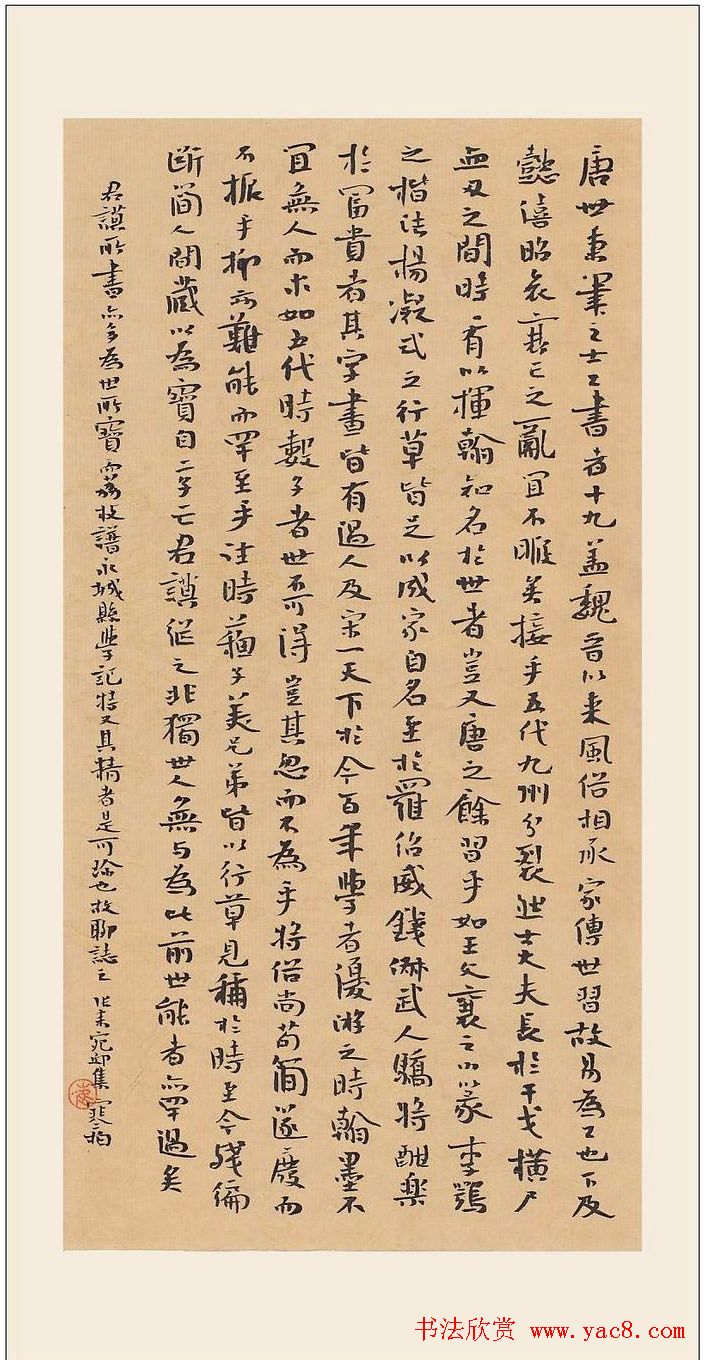 唐世秉筆之士工書者十九蓋魏晉以來風俗相承家傳世習故易為工也下及
懿僖昭哀衰亡之亂宜不暇矣接乎五代九州分裂然士大夫長於干戈橫尸
血刃之間時有以揮翰知名於世者豈又唐之餘習乎如王文秉之小篆李鶚
之楷法楊凝式之行草皆足以成家自名至於羅紹威錢俶武人驕將酣樂
於富貴者其字畫皆有過人及宋一天下於今百年學者優游之時翰墨不
宜無人而求如五代時數子者世不可得豈其忽而不為乎將俗尚苟簡遂廢而
不振乎抑亦難能而罕至乎往時蘇子美兄弟皆以行草見稱於時至今殘編
斷簡人間藏以為寶自二子亡君謨從之非獨世人無與為比前世能者亦罕過矣
君謨所書亦多為世所寶而荔枝譜永城縣學記特又其精者是可珍也故聊誌之
書法欣赏 www.yac8.com